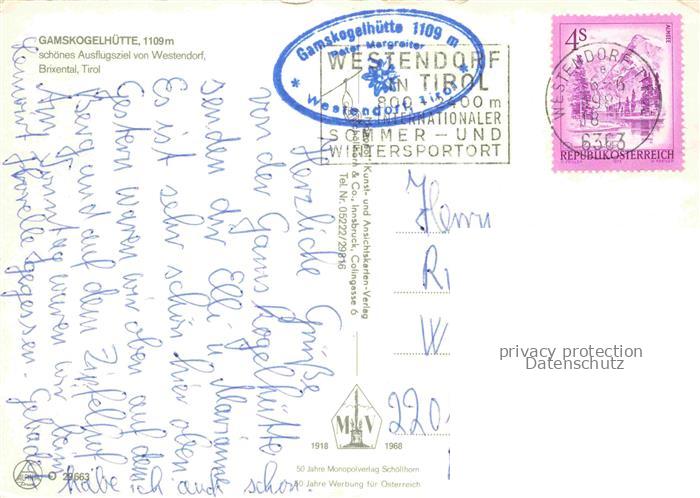 GAMSKOGELHÜTTE, 1109 m
schönes Ausflugsziel von Westendorf,
Brixental, Tirol
Gamskogelhütte 1109 m
Peter Margreiter
* Westendorf, Tirol *
WESTENDORF
IN TIROL
800 - 2400 m
INTERNATIONALER
SOMMER - UND
WINTERSPORTORT
4 S
ALMSEE
REPUBLIK ÖSTERREICH
WESTENDORF TIROL
6363
Herzliche Grüße
von der Gamskogelhütte
senden dir Elli u. Marianne
Es ist sehr schön hier oben
Gestern waren wir oben auf dem
Berg und auf dem
Am Sonntag waren wir
Forelle gegessen. Gebadet
habe ich auch schon.
Kunst- und Ansichtskarten-Verlag
Schöllhorn & Co., Innsbruck, Colingasse 6
Tel. Nr. 05222/29816
Herrn
R
W
220
MV
1918
1968
50 Jahre Monopolverlag Schöllhorn
50 Jahre Werbung für Österreich
ALPINA
O 29663
privacy protection
Datenschutz